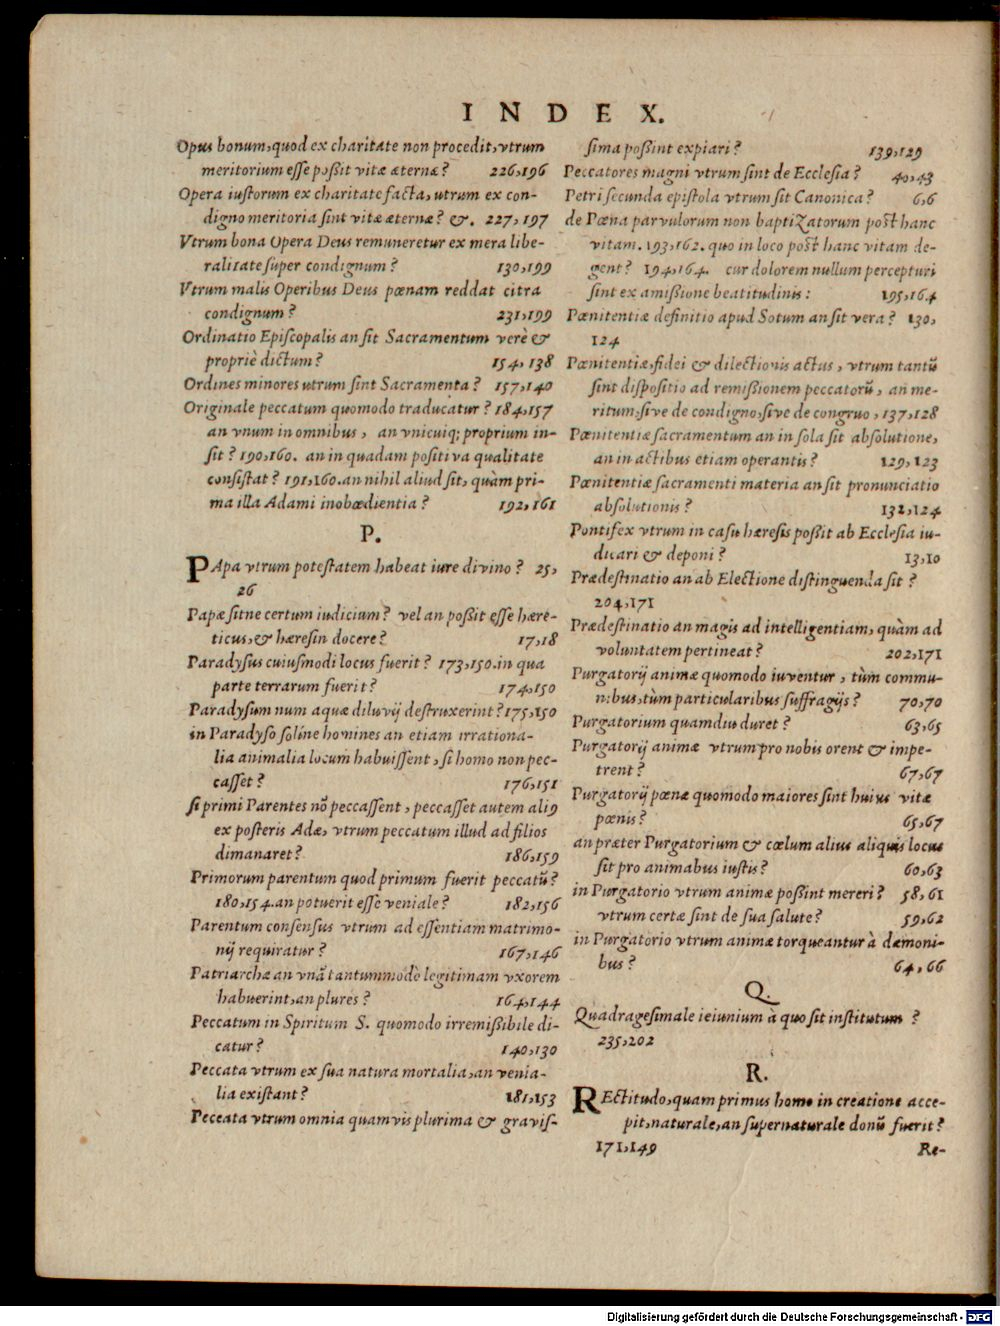 INDEX.
Opus bonum, quod ex charitate non procedit, vtrum
meritorium esse poßit vitæ æternæ? 226,196
Opera iustorum ex charitate facta, utrum ex con-
digno meritoria sint vitæ æternæ? &. 227,197
Vtrum bona Opera Deus remuneretur ex mera libe-
ralitate super condignum? 130,199
Vtrum malis Operibus Deus pœnam reddat citra
condignum? 231,199
Ordinatio Episcopalis an sit Sacramentum verè &
propriè dictum? 154, 138
Ordines minores utrum sint Sacramenta? 157,140
Originale peccatum quomodo traducatur? 184,157
an vnum in omnibus, an vnicuiq; proprium in-
sit? 190,160. an in quadam positiva qualitate
consistat? 191,160. an nihil aliud sit, quàm pri-
ma illa Adami inobœdientia? 192,161
P.
PApa vtrum potestatem habeat iure divino? 25,
26
Papæ sitne certum iudicium? vel an poßit esse hære-
ticus, & hæresin docere? 17,18
Paradysus cuiusmodi locus fuerit? 173,150. in qua
parte terrarum fuerit? 174,150
Paradysum num aquæ diluvij destruxerint? 175,150
in Paradyso soline homines an etiam irrationa-
lia animalia locum habuissent, si homo non pec-
casset? 176,151
si primi Parentes nõ peccassent, peccasset autem aliꝯ
ex posteris Adæ, vtrum peccatum illud ad filios
dimanaret? 186,159
Primorum parentum quod primum fuerit peccatũ?
180,154. an potuerit esse veniale? 182,156
Parentum consensus vtrum ad essentiam matrimo-
nij requiratur? 167,146
Patriarchæ an vnã tantummodò legitimam vxorem
habuerint, an plures? 164,144
Peccatum in Spiritum S. quomodo irremißibile di-
catur? 140,130
Peccata vtrum ex sua natura mortalia, an venia-
lia existant? 181,153
Peccata vtrum omnia quamvis plurima & gravis-
sima poßint expiari? 139,129
Peccatores magni vtrum sint de Ecclesia? 40,43
Petri secunda epistola vtrum sit Canonica? 6,6
de Pœna parvulorum non baptizatorum post hanc
vitam. 193,162. quo in loco post hanc vitam de-
gent? 194,164. cur dolorem nullum percepturi
sint ex amißione beatitudinis: 195,164
Pœnitentiæ definitio apud Sotum an sit vera? 130,
124
Pœnitentiæ, fidei & dilectionis actus, vtrum tantũ
sint dispositio ad remißionem peccatorũ, an me-
ritum, sive de condigno, sive de congruo, 137,128
Pœnitentiæ sacramentum an in sola sit absolutione,
an in actibus etiam operantis? 129,123
Pœnitentiæ sacramenti materia an sit pronunciatio
absolutionis? 132,124
Pontifex vtrum in casu hæresis poßit ab Ecclesia iu-
dicari & deponi? 13,10
Prædestinatio an ab Electione distinguenda sit?
204,171
Prædestinatio an magis ad intelligentiam, quàm ad
voluntatem pertineat? 202,171
Purgatorij animæ quomodo iuventur, tùm commu-
nibus, tùm particularibus suffragijs? 70,70
Purgatorium quamdiu duret? 63,65
Purgatorij animæ vtrum pro nobis orent & impe-
trent? 67,67
Purgatorij pœnæ quomodo maiores sint huius vitæ
pœnis? 65,67
an præter Purgatorium & cœlum alius aliquis locus
sit pro animabus iustis? 60,63
in Purgatorio vtrum animæ poßint mereri? 58,61
vtrum certæ sint de sua salute? 59,62
in Purgatorio vtrum animæ torqueantur à dæmoni-
bus? 64,66
Q.
Quadragesimale ieiunium à quo sit institutum?
235,202
R.
REctitudo, quam primus homo in creatione acce-
pit, naturale, an supernaturale donũ fuerit?
171,149
Re-
Digitalisierung gefördert durch die Deutsche Forschungsgemeinschaft - DFG